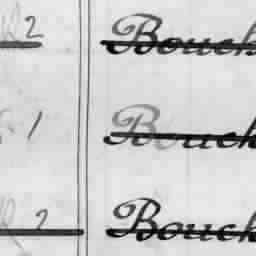 2 Bouch
1 Bouch
2 Bouch